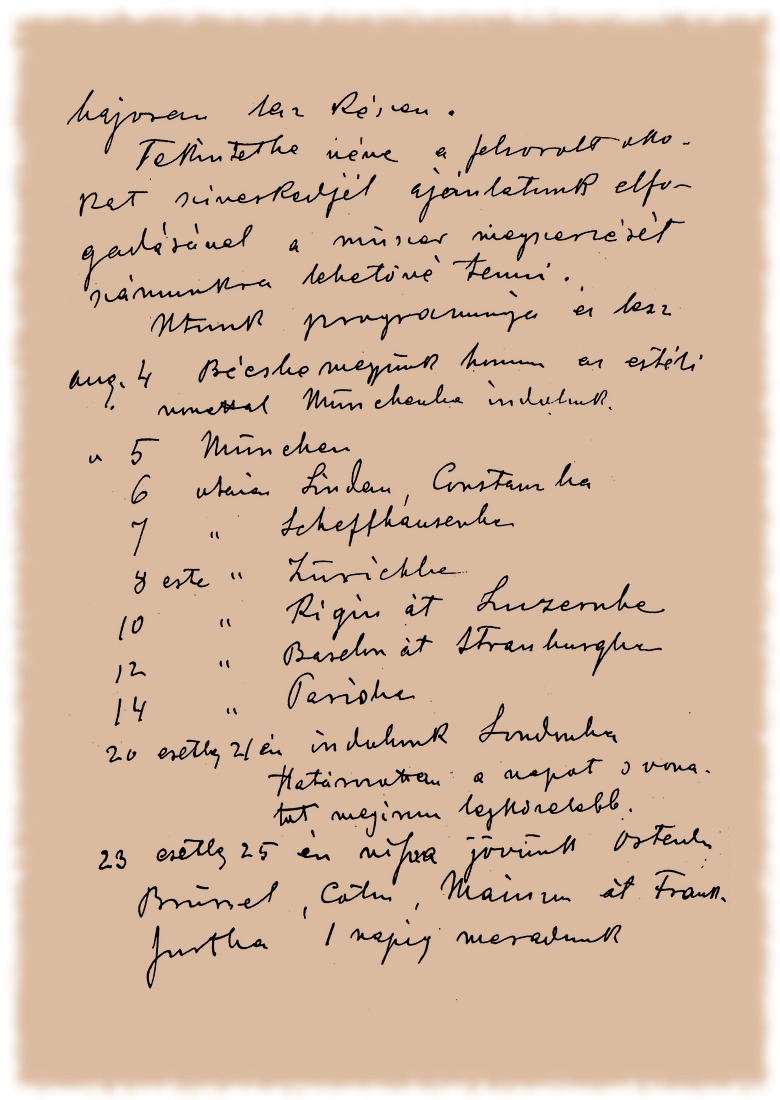 bajosan lesz
Tekintetbe véve a felsorolt oko-
kat sziveskedjél ajánlatunk elfo-
gadásával a műszer megszerzését
számunkra lehetővé tenni.
Utunk programmja ez lesz
aug. 4 Bécsbe megyünk honnan az estéli
vonattal Münchenba indulunk.
" 5 München
6 utazás Lindau, Constanzba
7 " Schaffhausenba
8 este " Zürichbe
10 " Rigin át Luzernbe
12 " Baselon át Strassburgba
14 " Párisba
20 esetleg 21 én indulunk Londonba
Határozottan a napot s vona-
tot megirom legközelebb.
23 esetleg 25 én vissza jövünk Ostende
Brüssel, Cöln, Mainzon át Frank-
furtba 1 napig maradunk